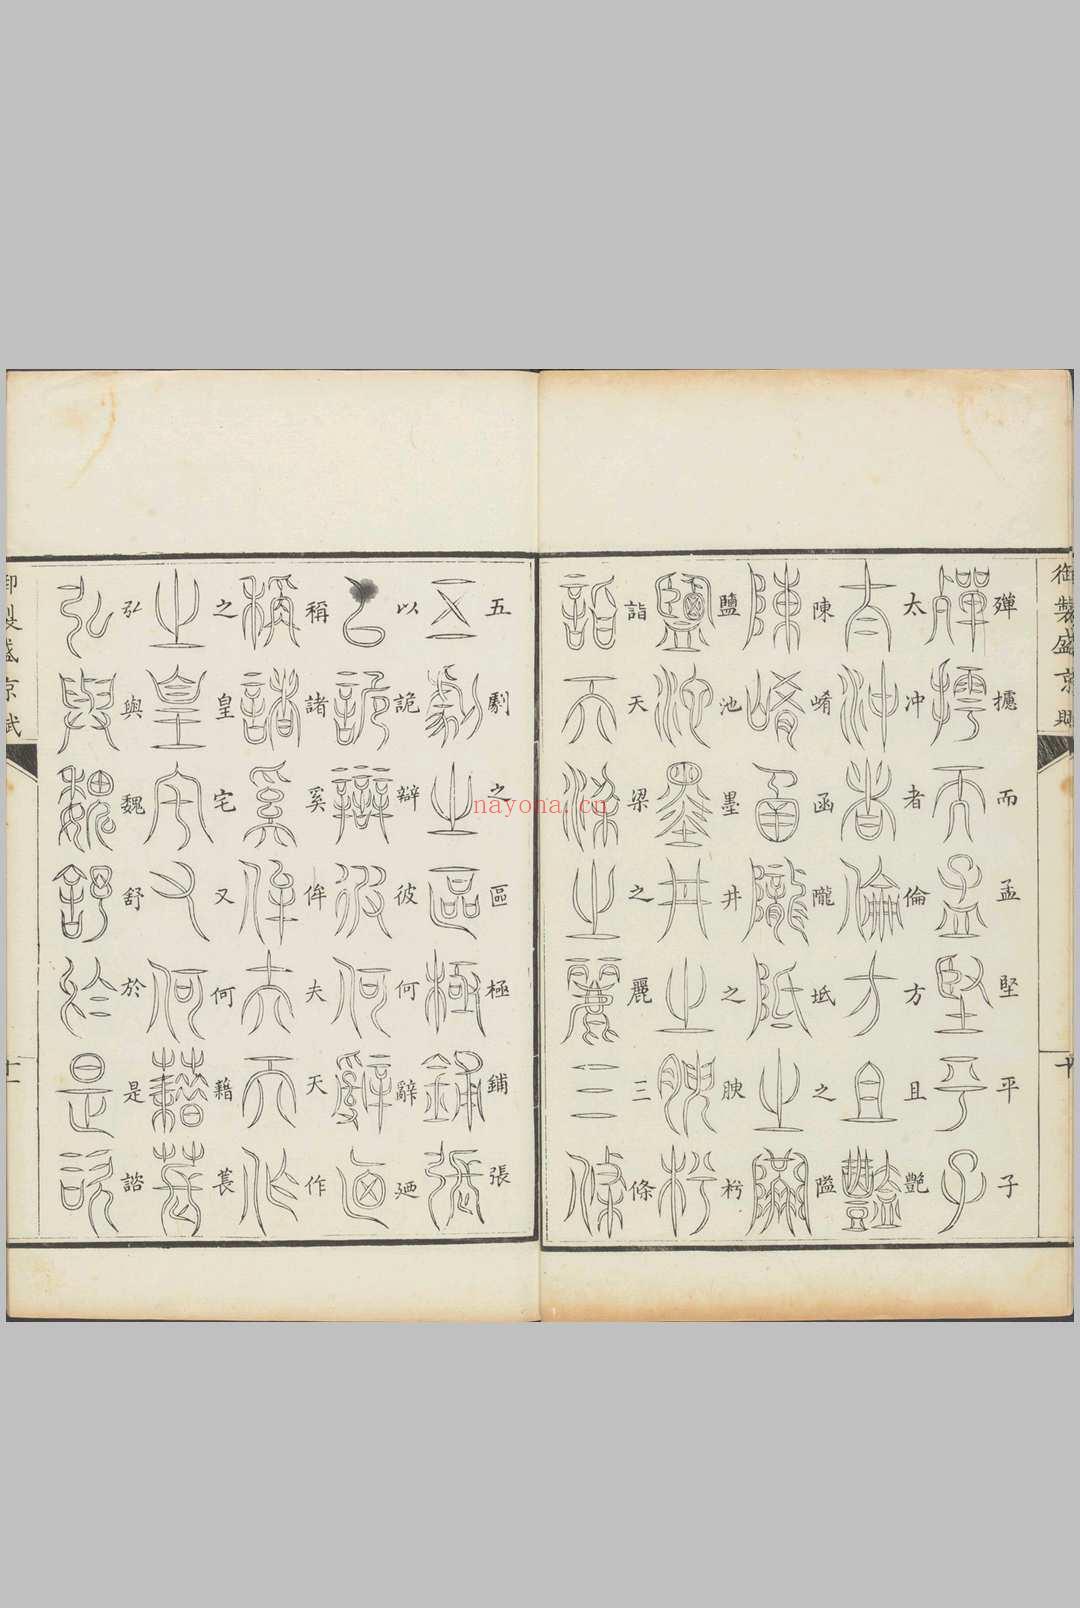 御製盛京賦
殫攄而孟堅平子
太冲者倫方且艷
陳崤函隴坻之隘
鹽池墨井之腴衿
詣天梁之麗三條
十
五劇之區極鋪張
以詭辯彼何辭迺
稱諸奚侔夫天作
之皇宅又何藉萇
弘與魏舒於是諮
御製盛京賦
十一
nayona.cn